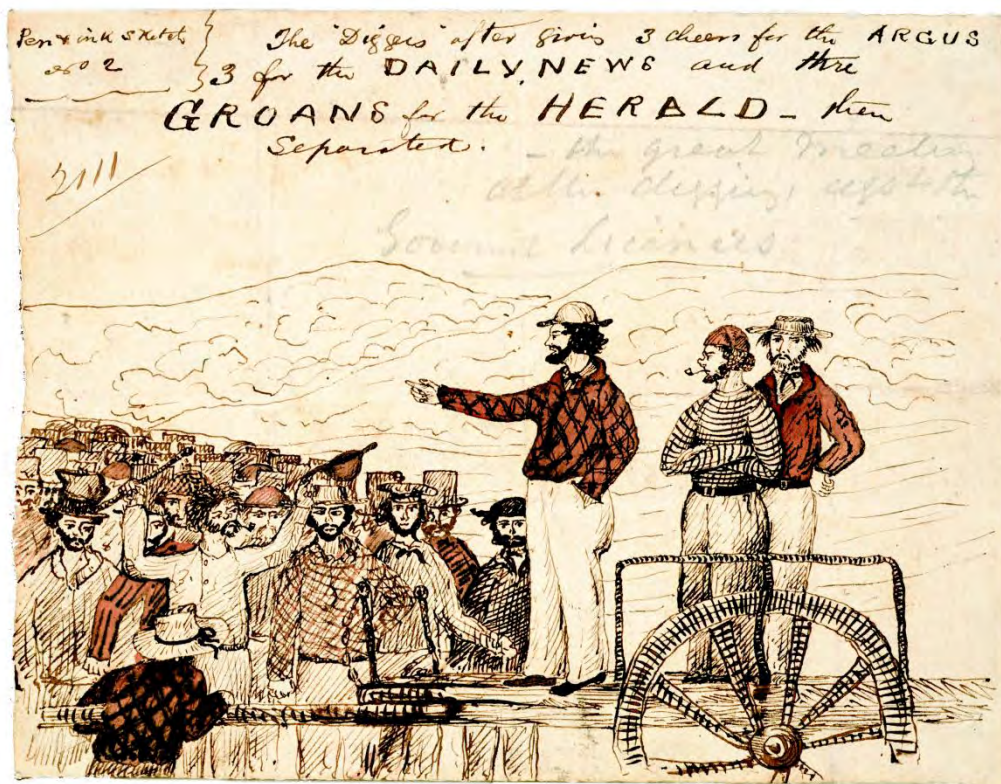 Pen & ink Sketch
No 2
The "Diggers" after givin 3 cheers for the ARGUS
3 for the DAILY, NEWS and thre
GROANS for the HERALD - then
Separated.
- the great Meeting
at the diggings agst the
Licences
2111